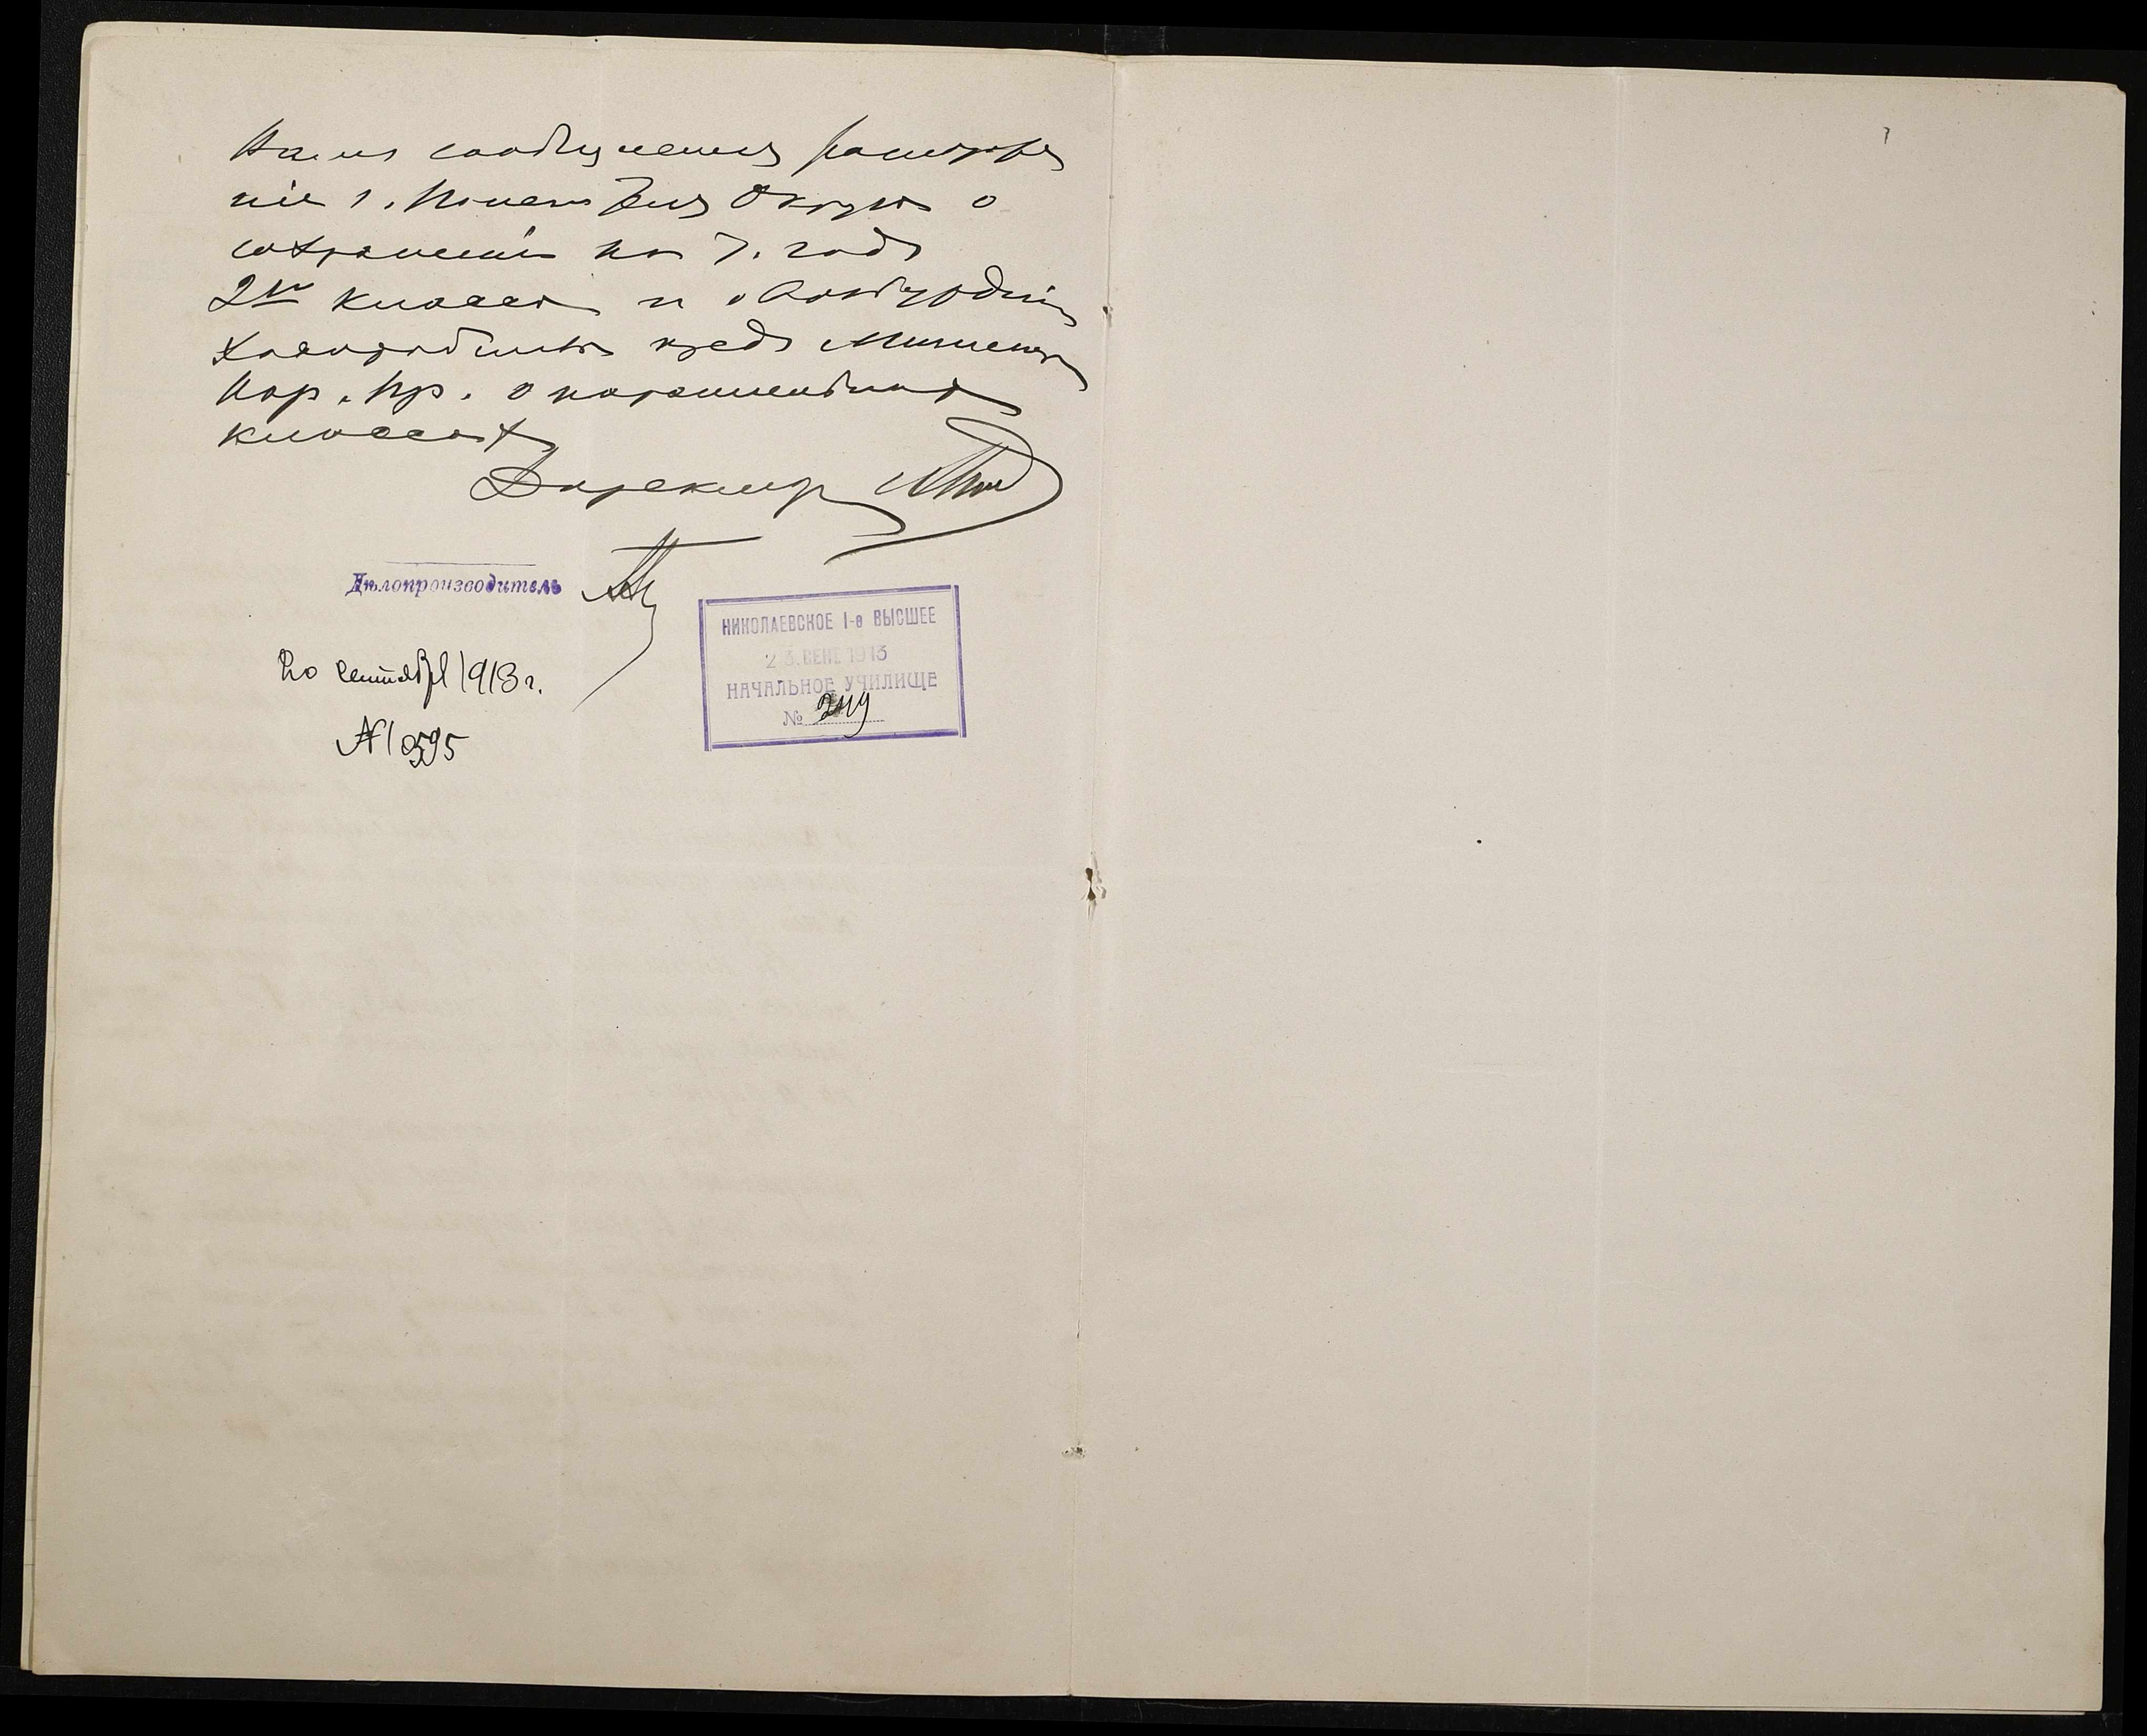 сообщения распоряже
ніе г. Попечителя Округа о
сохраненіи на г. годъ
2го класса и о возбужденіи
ходатайства предъ Министр
Нар. Пр. о параллельныхъ
классахъ
Директоръ
Дѣлопроизводитель
20 сентября 1913 г.
№ 10595
НИКОЛАЕВСКОЕ I-е ВЫСШЕЕ
23. СЕНТ 1913
НАЧАЛЬНОЕ УЧИЛИЩЕ
№ 249
7